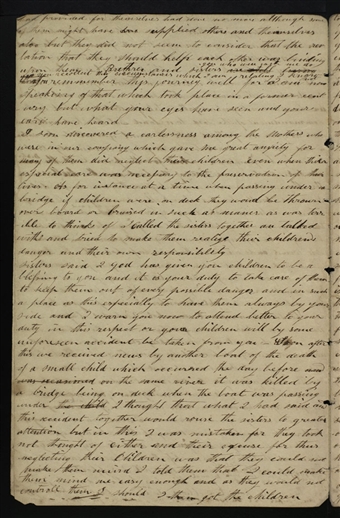 not provided for themselves had seen no more although
by them might have done supplied others and themselves
also but they did not seem to consider that the rev
elation that they should help each other was binding
upon them
remember this journey and I am not
speaking of that which took place in a corner
but what your eyes have seen and your
ears have heard
I soon discovered a carelessness among the Mothers who
were in our company which gave me great anxiety for
many of them did neglect their children even when their
especial care was necessary to the preservation of their
lives as for instance at a time when passing under a
bridge if children were on deck they would be thrown
over board or bruised in such a manner as was terr
ible to think of I called the sisters together and talked
with and tried to make them realize their childrens
danger and their own responsibility
Sisters said I god has given you children to be a
blessing to you and it is your duty to take care of them
to keep them out of every possible danger and in such
a place as this especially to have them always by your
side and I warn you now to attend better to your
duty in this respect or your children will by some
unforeseen accident be taken from you - Soon after
this we received news by another boat of the death
of a small child which occurred the day before
on the same river it was killed by
a bridge being on deck when the boat was passing
under the child I thought that what I had said and
this accident together would rouse the sisters to greater
attention but in this I was mistaken for they took
not thought of either and their excuse for thus
neglecting their Children was that they could not
make them mind I told them that I could make
them mind me easy enough and as they would not
controll them I should I then got the children